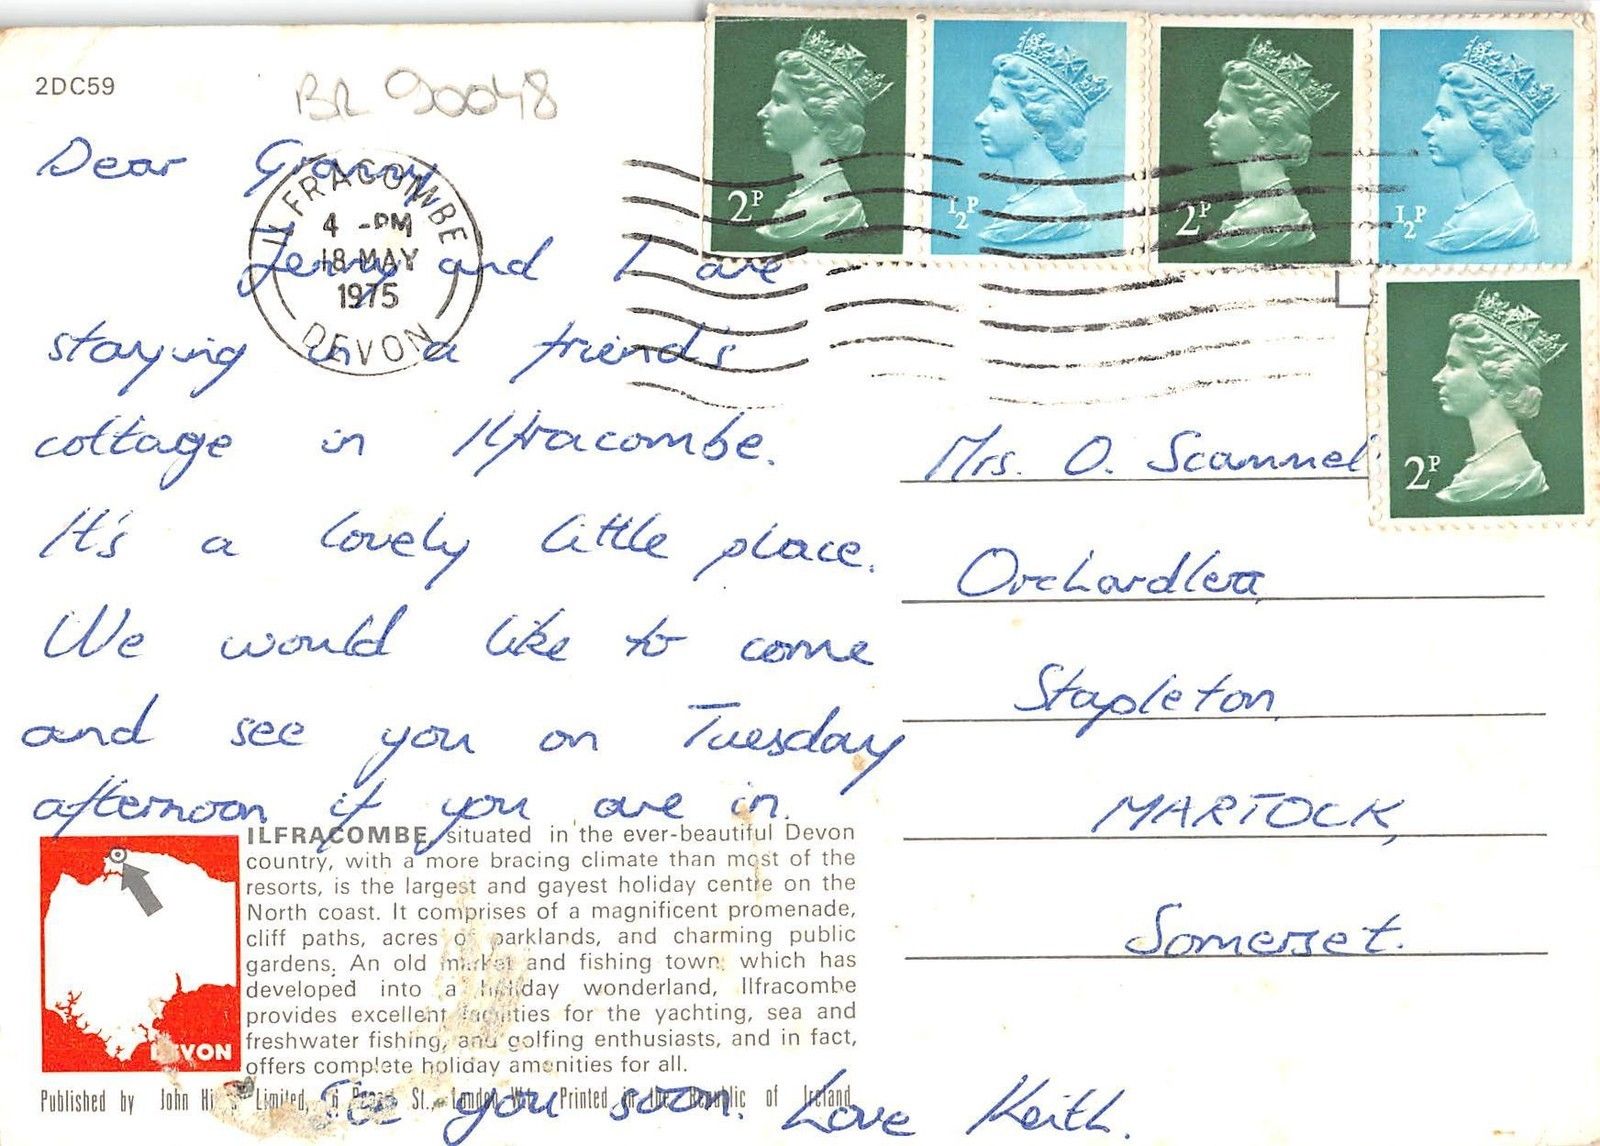 2DC59
BR 90048
Dear Granny
Jenny and I are
staying in a friend's
cottage in Ilfracombe.
It's a lovely little place.
We would like to come
and see you on Tuesday
afternoon if you are in.
See you soon. Love Keith.
ILFRACOMBE
4 -PM
18 MAY
1975
DEVON
2P
½P
2P
½P
2P
Mrs. O. Scammel
Orchardlea,
Stapleton,
MARTOCK,
Somerset.
DEVON
ILFRACOMBE, situated in the ever-beautiful Devon
country, with a more bracing climate than most of the
resorts, is the largest and gayest holiday centre on the
North coast. It comprises of a magnificent promenade,
cliff paths, acres of parklands, and charming public
gardens. An old market and fishing town, which has
developed into a holiday wonderland, Ilfracombe
provides excellent facilities for the yachting, sea and
freshwater fishing, and golfing enthusiasts, and in fact,
offers complete holiday amenities for all.
Published by John Limited, 6 St., London Printed in the Republic of Ireland